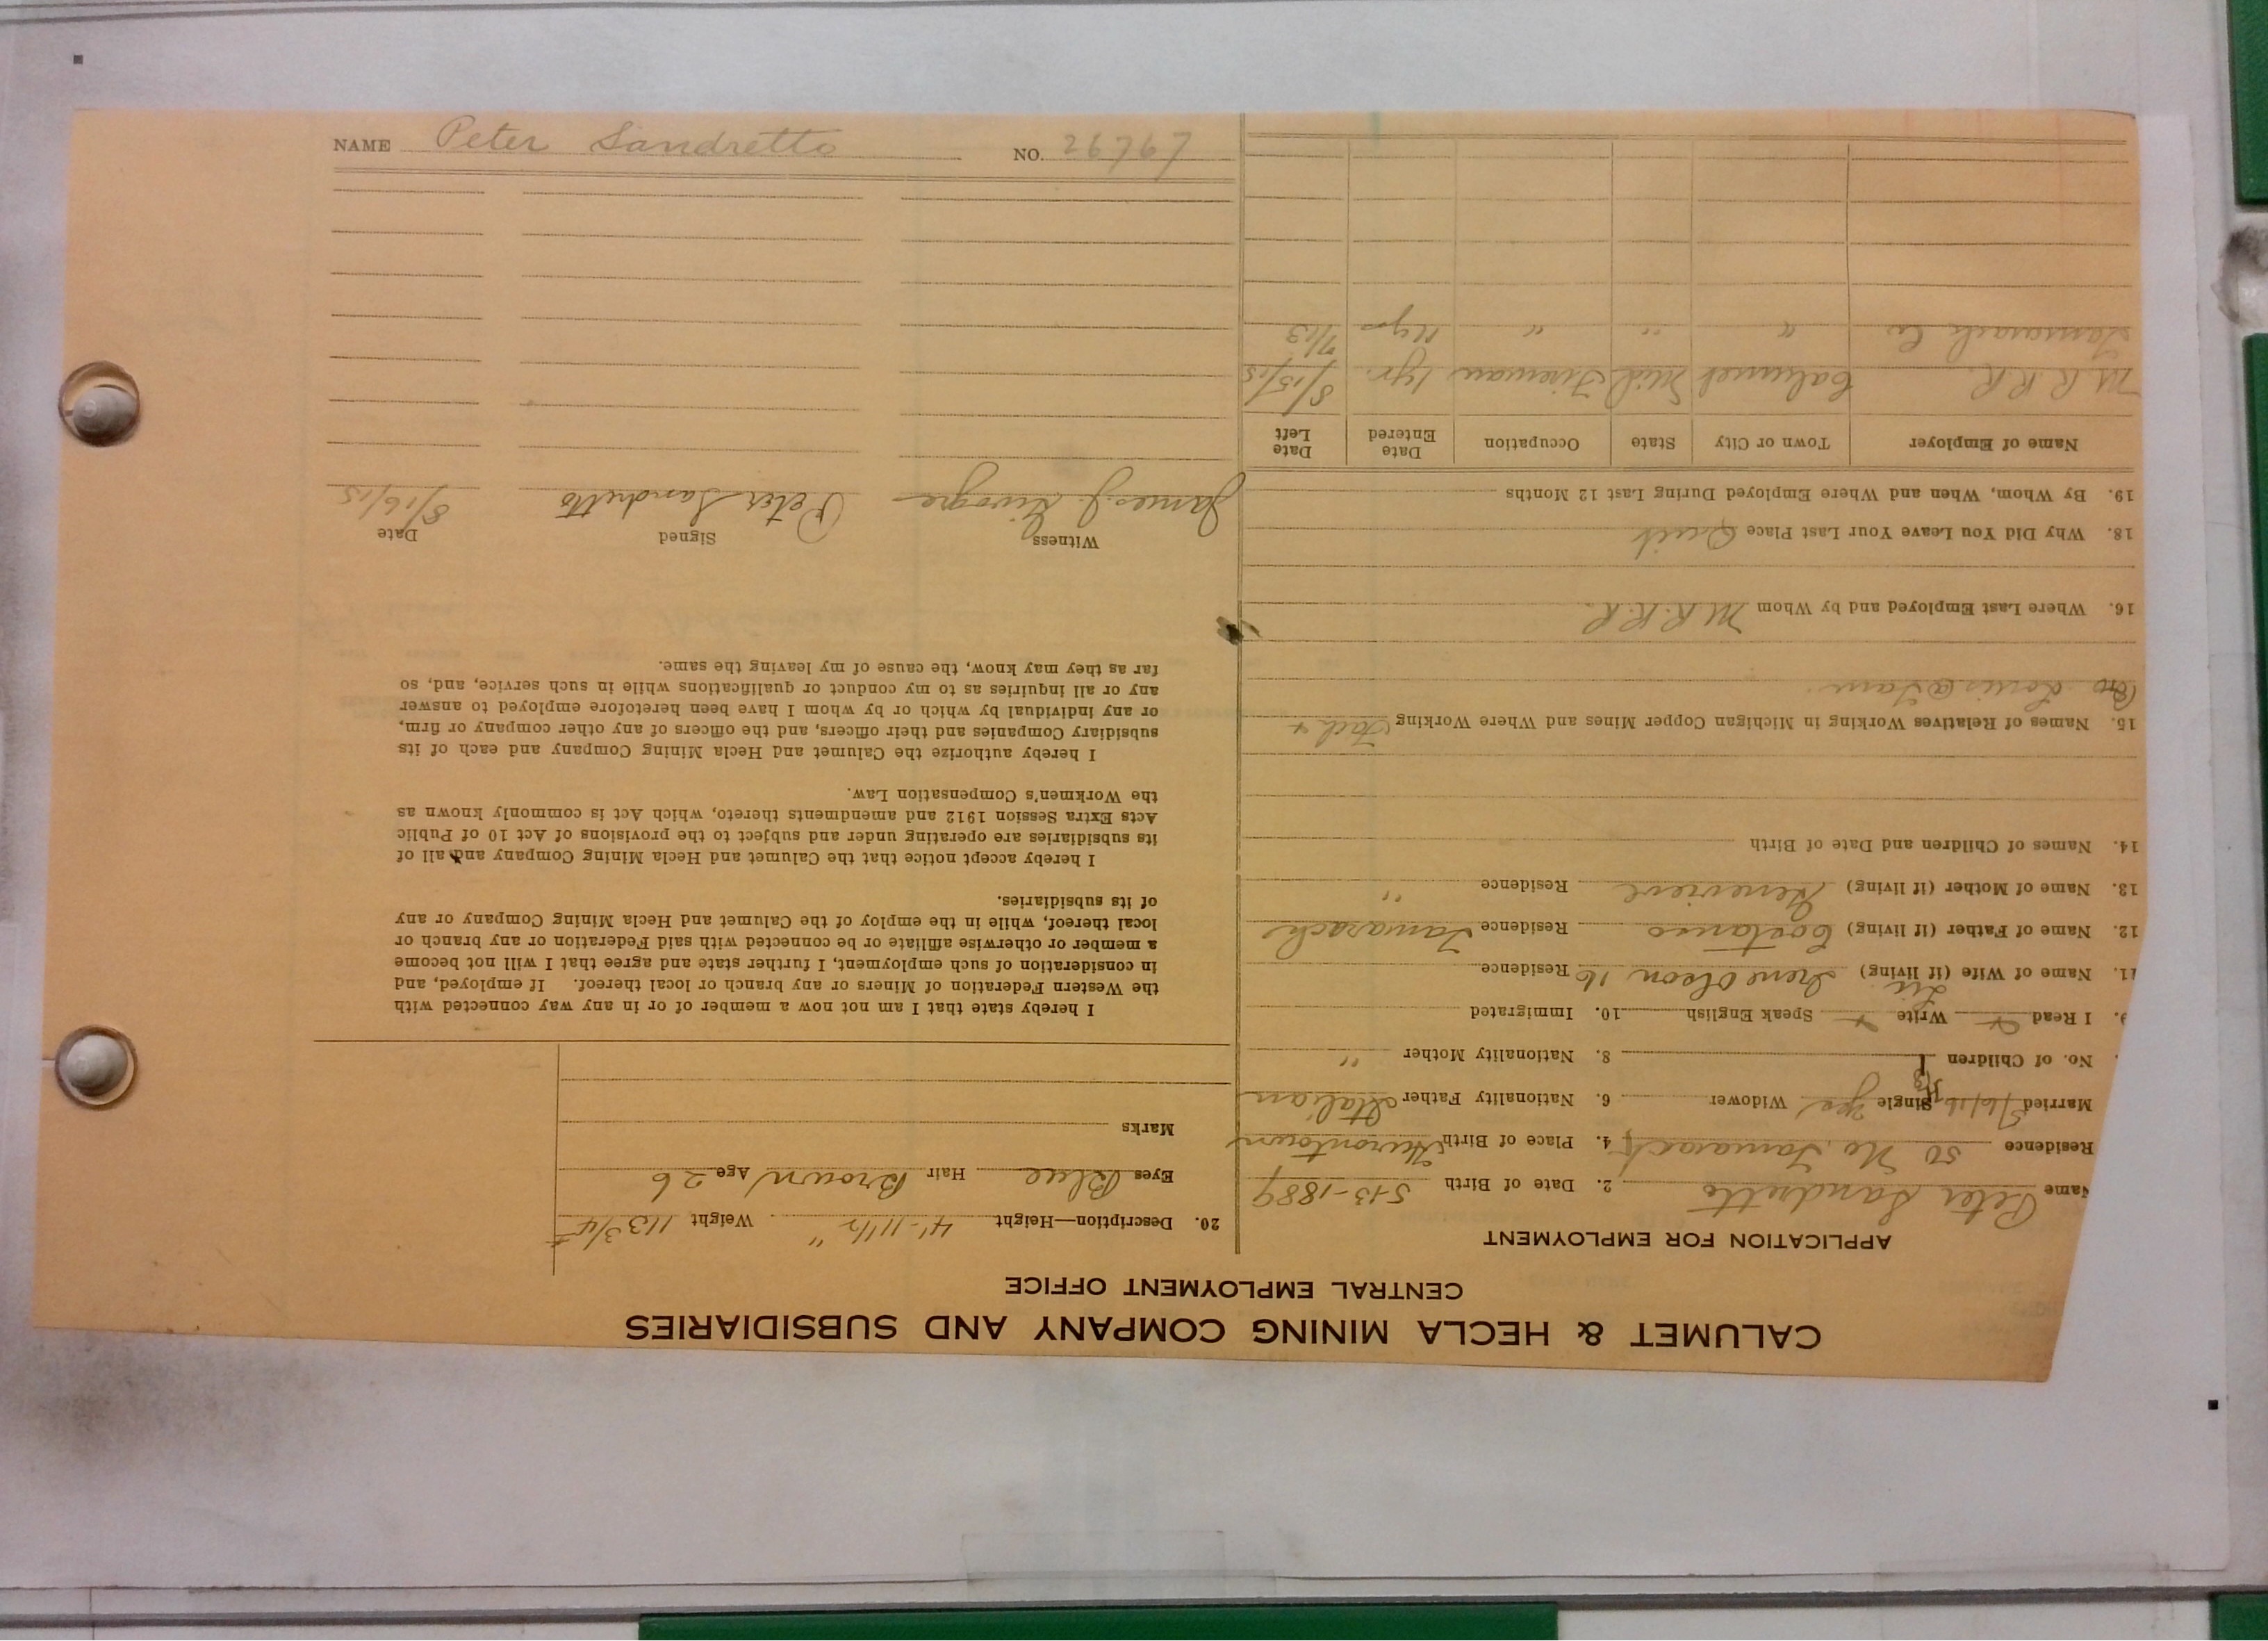 CALUMET & HECLA MINING COMPANY AND SUBSIDIARIES
CENTRAL EMPLOYMENT OFFICE
APPLICATION FOR EMPLOYMENT
Name Peter Sandretto 2. Date of Birth 5-13-1889
Residence 50 No. Tamarack 4. Place of Birth Hurontown
Married 5/6/16 Single yes Widower 6. Nationality Father Italian
No. of Children 8. Nationality Mother "
9. I Read Write Speak English 10. Immigrated
11. Name of Wife (if living) Irene Olson 16 Residence
12. Name of Father (if living) Residence Tamarack
13. Name of Mother (if living) Genevieve Residence "
14. Names of Children and Date of Birth
15. Names of Relatives Working in Michigan Copper Mines and Where Working Fath +
Bro Louis @ Tam
16. Where Last Employed and by Whom M.R.R.R.
18. Why Did You Leave Your Last Place Quit
19. By Whom, When and Where Employed During Last 12 Months
Name of Employer Town or City State Occupation Date Entered Date Left
M.R.R.R. Calumet Mich Fireman 1 yr. 8/15/15
Tamarack Co " " " 11 yrs 7/13
20. Description—Height 4'-11 1/2" Weight 113 3/4#
Eyes Blue Hair Brown Age 26
Marks
I hereby state that I am not now a member of or in any way connected with
the Western Federation of Miners or any branch or local thereof. If employed, and
in consideration of such employment, I further state and agree that I will not become
a member or otherwise affiliate or be connected with said Federation or any branch or
local thereof, while in the employ of the Calumet and Hecla Mining Company or any
of its subsidiaries.
I hereby accept notice that the Calumet and Hecla Mining Company and all of
its subsidiaries are operating under and subject to the provisions of Act 10 of Public
Acts Extra Session 1912 and amendments thereto, which Act is commonly known as
the Workmen's Compensation Law.
I hereby authorize the Calumet and Hecla Mining Company and each of its
subsidiary Companies and their officers, and the officers of any other company or firm,
or any individual by which or by whom I have been heretofore employed to answer
any or all inquiries as to my conduct or qualifications while in such service, and, so
far as they may know, the cause of my leaving the same.
Witness Signed Date
James J. Peter Sandretto 8/16/15
NAME Peter Sandretto NO. 26767